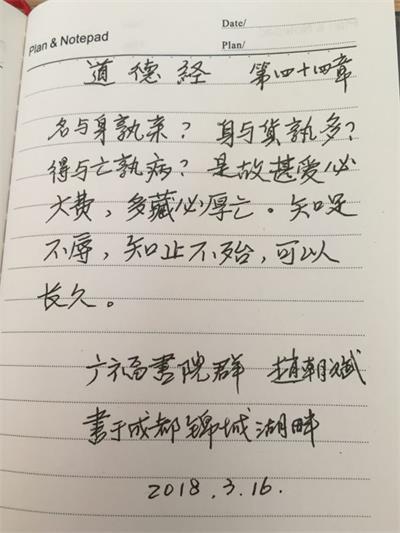 Plan & Notepad
Date/
Plan/
道德経 第四十四章
名与身孰亲？身与貨孰多？
得与亡孰病？是故甚爱必
大费，多藏必厚亡。知足
不辱，知止不殆，可以
长久。
六福書院群 趙朝斌
書于成都錦城湖畔
2018.3.16.